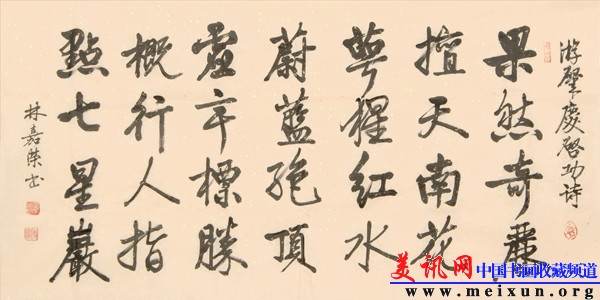 游肇慶啓功诗
果然奇麗
擅天南花
萼猩红水
蔚藍絶頂
虚亭標勝
概行人指
點七星巖
林嘉榮书
美讯网 中国书画收藏频道
www.meixun.org